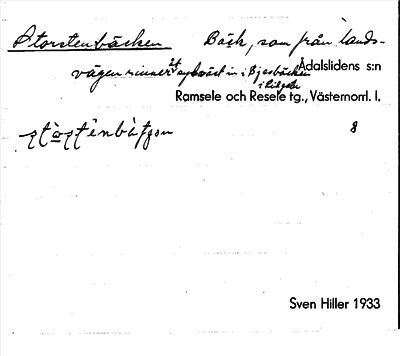 Storstenbäcken Bäck, som från lands-
vägen rinner åt sydväst in i Bjesbäcken Ådalslidens s:n
Ramsele och Resele tg., Västernorrl. l.
8
Sven Hiller 1933